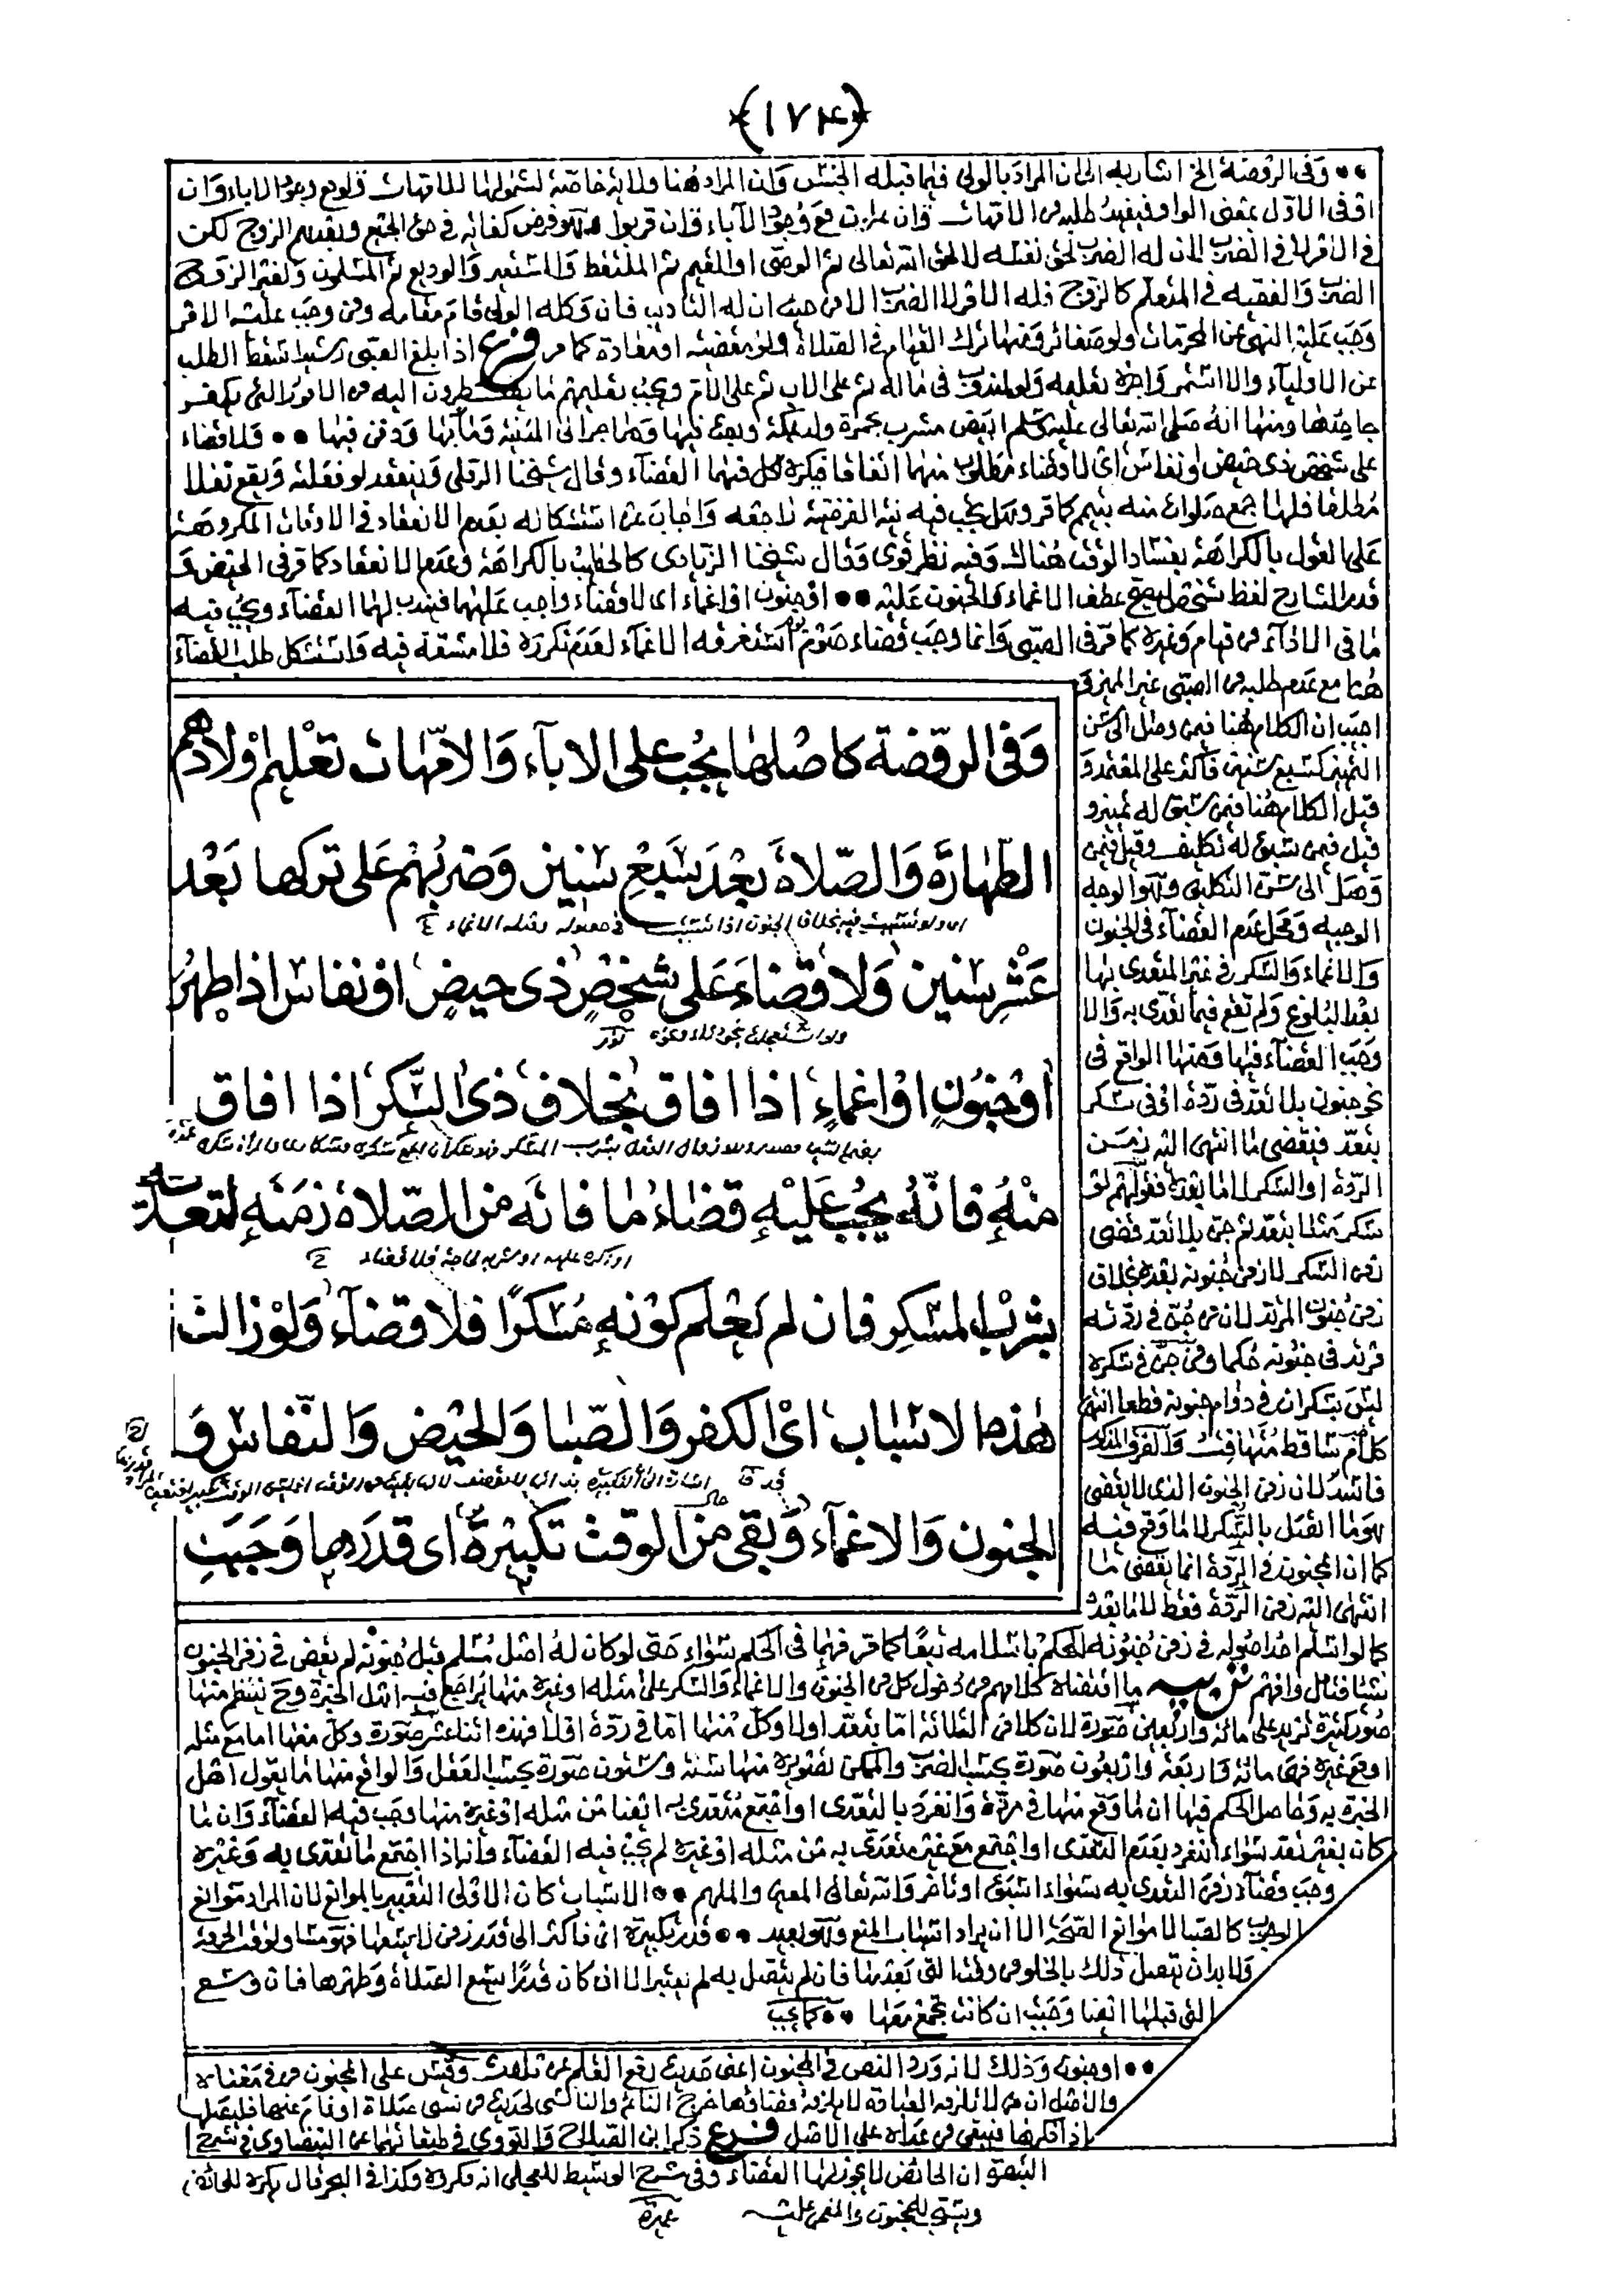 (١٧٤)
•• وفى الروضة الخ اشار به الى ان المراد بالولى فيما قبله الجنس وان المراد هنا ولاية خاصة لشمولها للامهات ولو مع وجود الاباء وان
او فى الاول بمعنى الواو فيفيد طلبه من الامهات وان علون مع وجود الآباء وان قربوا فهو فرض كفاية فى حق الجميع وبعدهم الزوج لكن
فى الامر لا فى الضرب لان له الضرب لحق نفسه لا لحق الله تعالى ثم الوصى او القيم ثم الملتقط والمستعير والوديع ثم المسلمون ولغير الزوج
الضرب والفقيه فى المتعلم كالزوج فله الامر لا الضرب الا من حيث ان له التاديب فان وكله الولى قام مقامه ومن وجب عليه الامر
وجب عليه النهى عن المحرمات ولو صغائر ومنها ترك القيام فى الصلاة ولو مقضية او معادة كما مر فرع اذا بلغ الصبى رشيدا سقط الطلب
عن الاولياء والا استمر واجرة تعليمه ولو لمندوب فى ماله ثم على الاب ثم على الام ويجب تعليمهم ما يضطرون اليه من الامور التى يكفر
جاحدها ومنها انه صلى الله تعالى عليه وسلم ابيض مشرب بحمرة ولد بمكة وبعث فيها وهاجر الى المدينة ومات بها ودفن فيها •• ولا قضاء
على شخص ذى حيض او نفاس اى لا قضاء مطلوب منهما اتفاقا فيكره لكل منهما القضاء وقال شيخنا الرملى وينعقد لو فعلته ويقع نفلا
مطلقا فلها جمع صلوات منه بتيمم كما مر وهل يجب فيه نية الفرضية راجعه واجاب عن استشكاله بعدم الانعقاد فى الاوقات المكروهة
على القول بالكراهة بفساد الوقت هناك وفيه نظر قوى وقال شيخنا الزيادى كالخطيب بالكراهة وعدم الانعقاد كما مر فى الحيض و
قدر الشارح لفظ شخص ليصح عطف الاغماء والجنون عليه •• او جنون او اغماء اى لا قضاء واجب عليهما فيندب لهما القضاء ويجب فيه
ما فى الاداء من قيام وغيره كما مر فى الصبى وانما وجب قضاء صوم يوم استغرقه الاغماء لعدم تكرره فلا مشقة فيه واستشكل طلب القضاء
هنا مع عدم طلبه من الصبى غير المميز و
اجيب ان الكلام هنا فيمن وصل الى سن
التمييز كسبع سنين فاكثر على المعتمد و
قيل الكلام هنا فيمن سبق له تمييز و
قيل فيمن سبق له تكليف وقيل فيمن
وصل الى سن التكليف وهو الوجه
الوجيه ومحل عدم القضاء فى الجنون
والاغماء والسكر فى غير المتعدى بها
بعد البلوغ ولم تقع فيما تعدى به والا
وجب القضاء فيها ومنها الواقع فى
نحو جنون بلا تعد فى ردة او فى سكر
بتعد فيقضى ما انتهى اليه زمن
الردة او السكر لا ما بعده فقولهم لو
سكر مثلا بتعد ثم جن بلا تعد قضى
زمن السكر لا زمن جنونه بعده بخلاف
زمن جنون المرتد لان من جن فى ردته
مرتد فى جنونه حكما ومن جن فى سكره
ليس بسكران فى دوام جنونه قطعا انتهى
كلام ساقط متهافت والفرق المذكور
فاسد لان زمن الجنون الذى لا يقضى
هو ما اتصل بالسكر لا ما وقع فيه
كما ان المجنون فى الردة انما يقضى ما
انتهى اليه زمن الردة فقط لا ما بعده
وَفى الروضة كاصلها يجب على الاباء والامهات تعليم اولادهم
الطهارة والصلاة بعد سبع سنين وضربهم على تركها بعد
عشر سنين ولا قضاء على شخص ذى حيض او نفاس اذا طهر
او جنون او اغماء اذا افاق بخلاف ذى السكر اذا افاق
منه فانه يجب عليه قضاء ما فاته من الصلاة زمنه لتعديه
بشرب المسكر فان لم يعلم كونه مسكرا فلا قضاء ولو زالت
هذه الاسباب اى الكفر والصبا والحيض والنفاس و
الجنون والاغماء وبقى من الوقت تكبيرة اى قدرها وجبت
كما لو اسلم احد اصوله فى زمن جنونه للحكم باسلامه تبعا كما مر فهما فى الحكم سواء حتى لو كان له اصل مسلم قبل جنونه لم يقض فى زمن الجنون
شيئا فتامل وافهم تنبيه ما اقتضاه كلامهم من دخول كل من الجنون والاغماء والسكر على مثله او غيره منها يراجع فيه اهل الخبرة وح ينتظم منها
صور كثيرة تزيد على مائة واربعين صورة لان كلا من الثلاثة اما بتعد اولا وكل منها اما فى ردة اولا فهذه اثنا عشر صورة وكل منها اما مع مثله
او مع غيره فهى مائة واربعة واربعون صورة بحسب الضرب والممكن تصويره منها ستة وستون صورة بحسب العقل والواقع منها ما يقول اهل
الخبرة به وحاصل الحكم فيها ان ما وقع منها فى مردة وانفرد بالتعدى او اجتمع متعدى به ايضا من مثله او غيره منها وجب فيه القضاء وان ما
كان بغير تعد سواء انفرد بعدم التعدى او اجتمع مع غير متعدى به من مثله او غيره لم يجب فيه القضاء وانه اذا اجتمع ما تعدى به وغيره
وجب قضاء زمن التعدى به سواء اسبق او تاخر والله تعالى المعين والملهم •• الاسباب كان الاولى التعبير بالموانع لان المراد موانع
الوجوب كالصبا لا موانع الصحة الا ان يراد اسباب المنع وهو بعيد •• قدر تكبيرة اى فاكثر الى قدر زمن لا يسعها فهو مساو لوقت الحرمة
ولا بد ان يتصل ذلك بالخلو من وقتها التى بعدها فان لم يتصل به لم يعتبر الا ان كان قدرا يسع الصلاة وطهرها فان وسع
التى قبلها ايضا وجبت ان كانت تجمع معها •• كما يجب
•• او جنون وذلك لانه ورد النص فى المجنون اعنى حديث رفع القلم عن ثلاث وقيس على المجنون من فى معناه
والاصل ان من لا تلزمه العبادة لا يلزمه قضاؤها خرج النائم والناسى لحديث من نسى صلاة او نام عنها فليصلها
اذا ذكرها فيبقى من عداه على الاصل فرع ذكر ابن الصلاح والنووى فى طبقاتهما عن البيضاوى فى شرح
التبصرة ان الحائض لا يجوز لها القضاء وفى شرح الوسيط للعجلى انه مكروه وكذا فى البحر قال يكره للحائض
ويستحب للمجنون والمغمى عليه عميرة